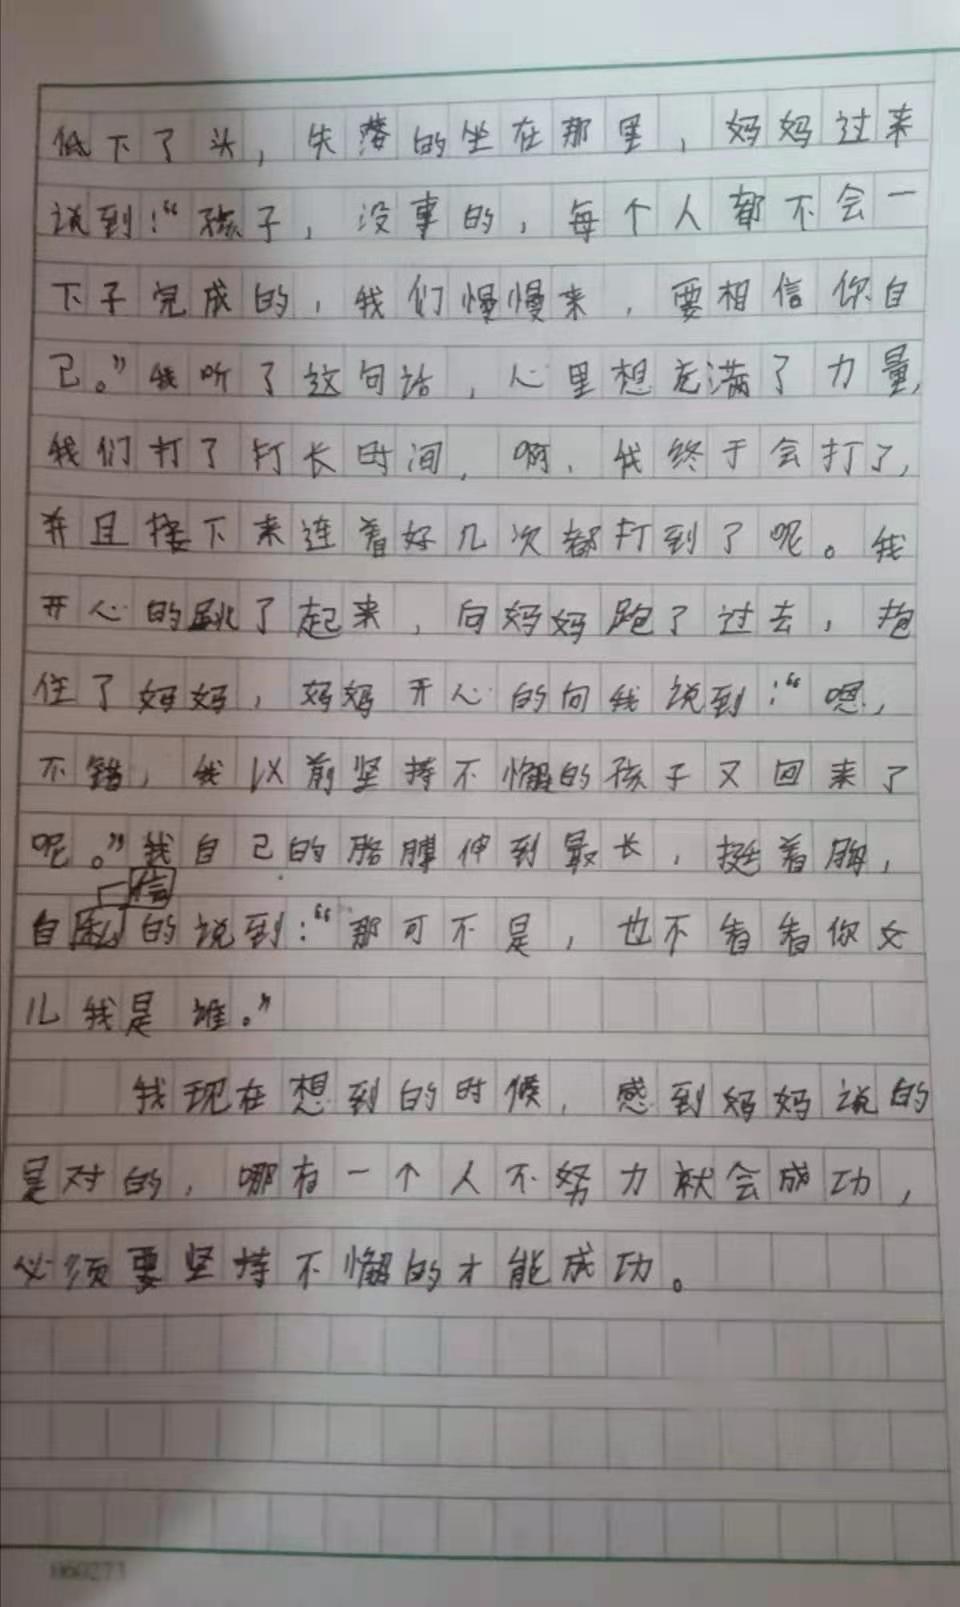 低下了头，失落的坐在那里，妈妈过来
说到：“孩子，没事的，每个人都不会一
下子完成的，我们慢慢来，要相信你自
己。”我听了这句话，心里想充满了力量，
我们打了好长时间，啊，我终于会打了，
并且接下来连着好几次都打到了呢。我
开心的跳了起来，向妈妈跑了过去，抱
住了妈妈，妈妈开心的向我说到：“嗯，
不错，我以前坚持不懈的孩子又回来了
呢。”我自己的胳膊伸到最长，挺着胸，
自信的说到：“那可不是，也不看看你女
儿我是谁。”
我现在想到的时候，感到妈妈说的
是对的，哪有一个人不努力就会成功，
必须要坚持不懈的才能成功。